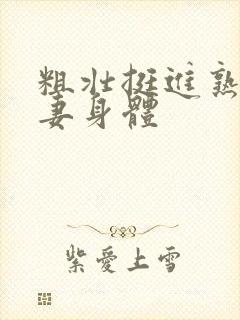 粗壯挺進熟
妻身體
紫愛上雪